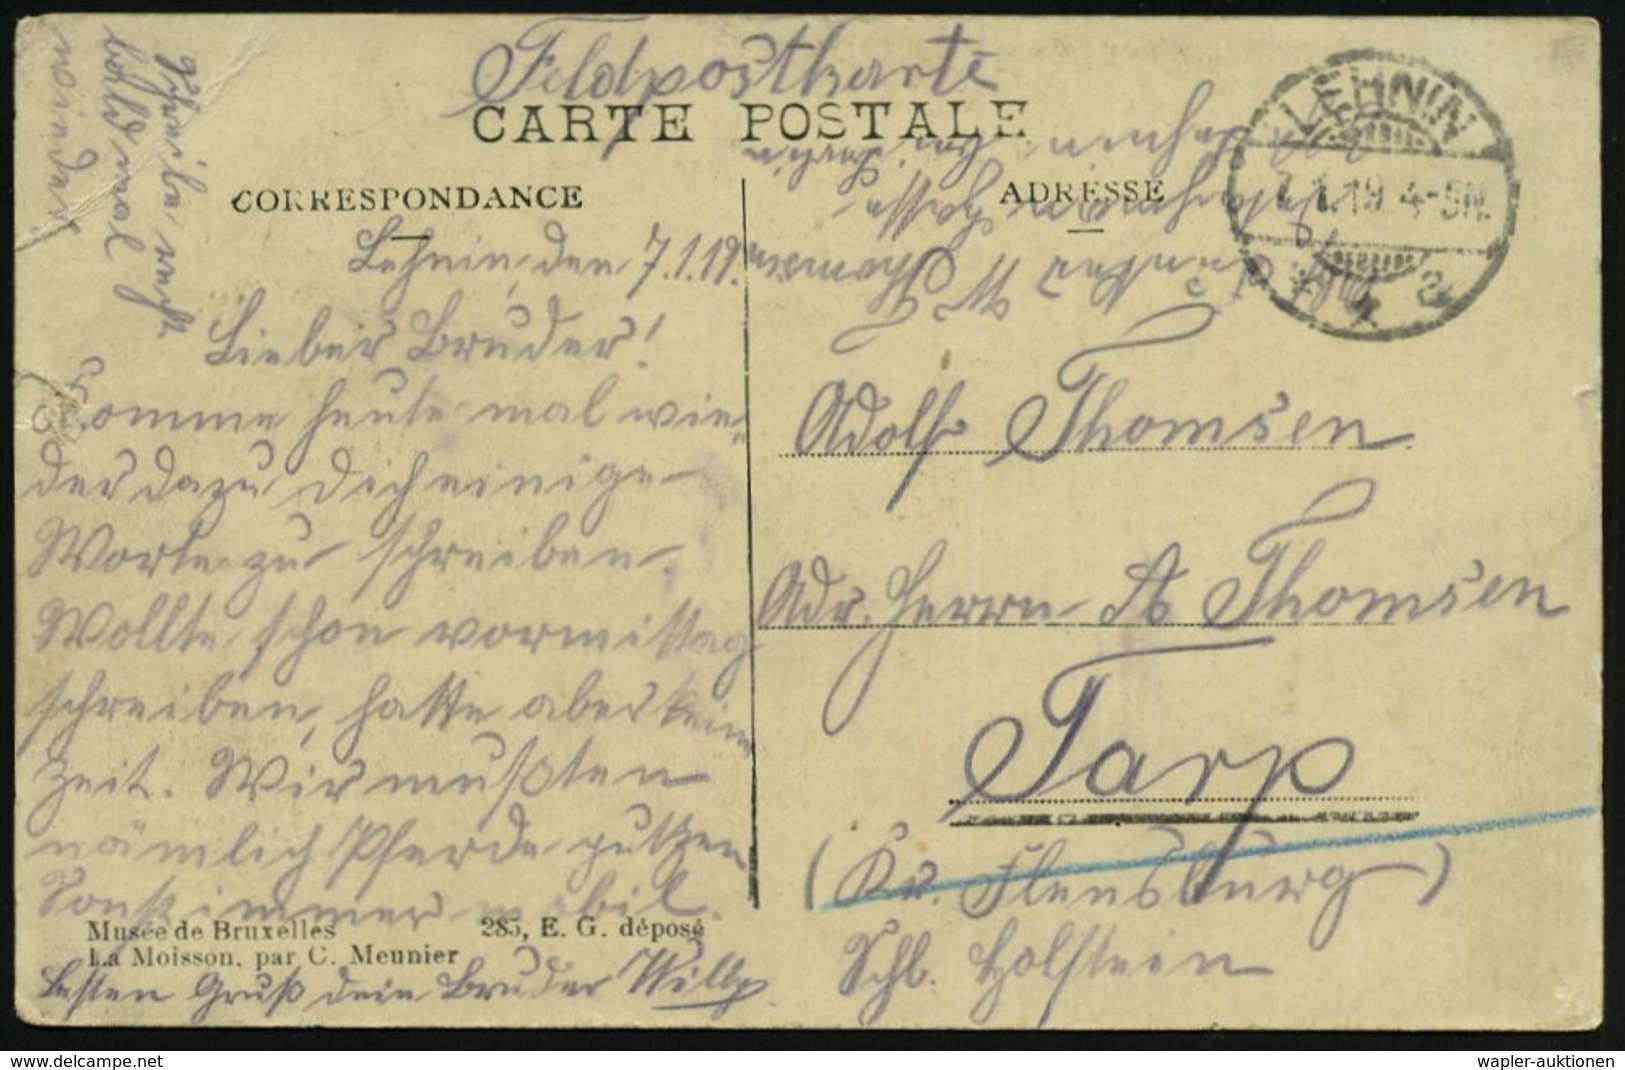 Feldpostkarte
CARTE POSTALE
CORRESPONDANCE
ADRESSE
LEHNIN
7.1.19. 4-5N.
Lehnin, den 7.1.19.
Lieber Bruder!
Komme heute mal wie-
der dazu Dich einige
Worte zu schreiben.
Wollte schon vormittag
schreiben, hatte aber keine
Zeit. Wir mußten
nämlich Pferde putzen
Sonst immer mobil.
Besten Gruß dein Bruder Willy
Schreibe recht
bald mal
wieder
Thomsen
Adolf Thomsen
Adr. Herrn A Thomsen
Tarp
(Kr. Flensburg)
Schl. Holstein
Musée de Bruxelles 285, E. G. déposé
La Moisson, par C. Meunier
www.delcampe.net
wapler-auktionen